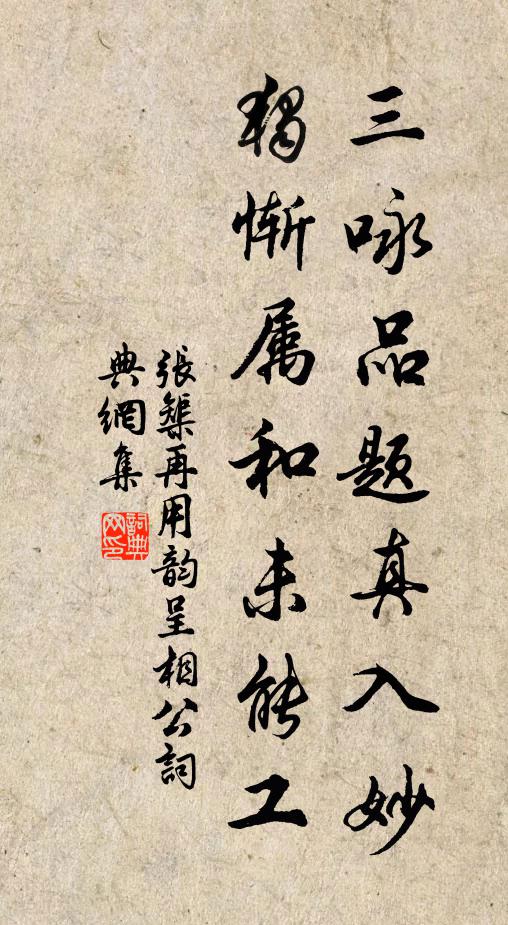 三咏品题真入妙
独惭属和未能工
張榘再用韵呈相公詞
典網集
詞典网印